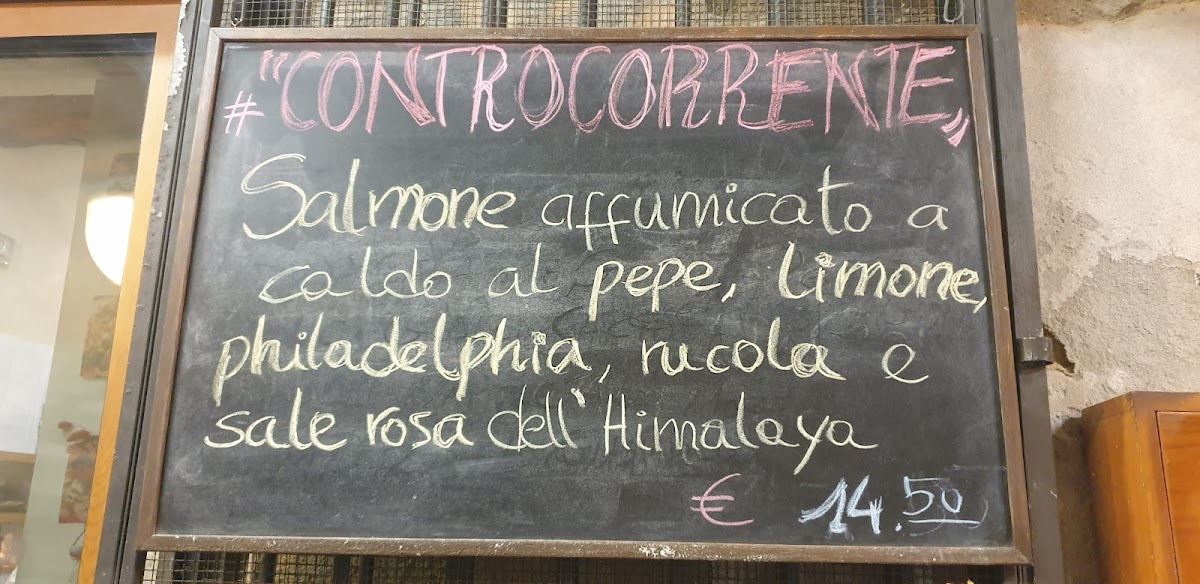 #"CONTROCORRENTE"
Salmone affumicato a
caldo al pepe, limone,
philadelphia, rucola e
sale rosa dell'Himalaya
€ 14.50